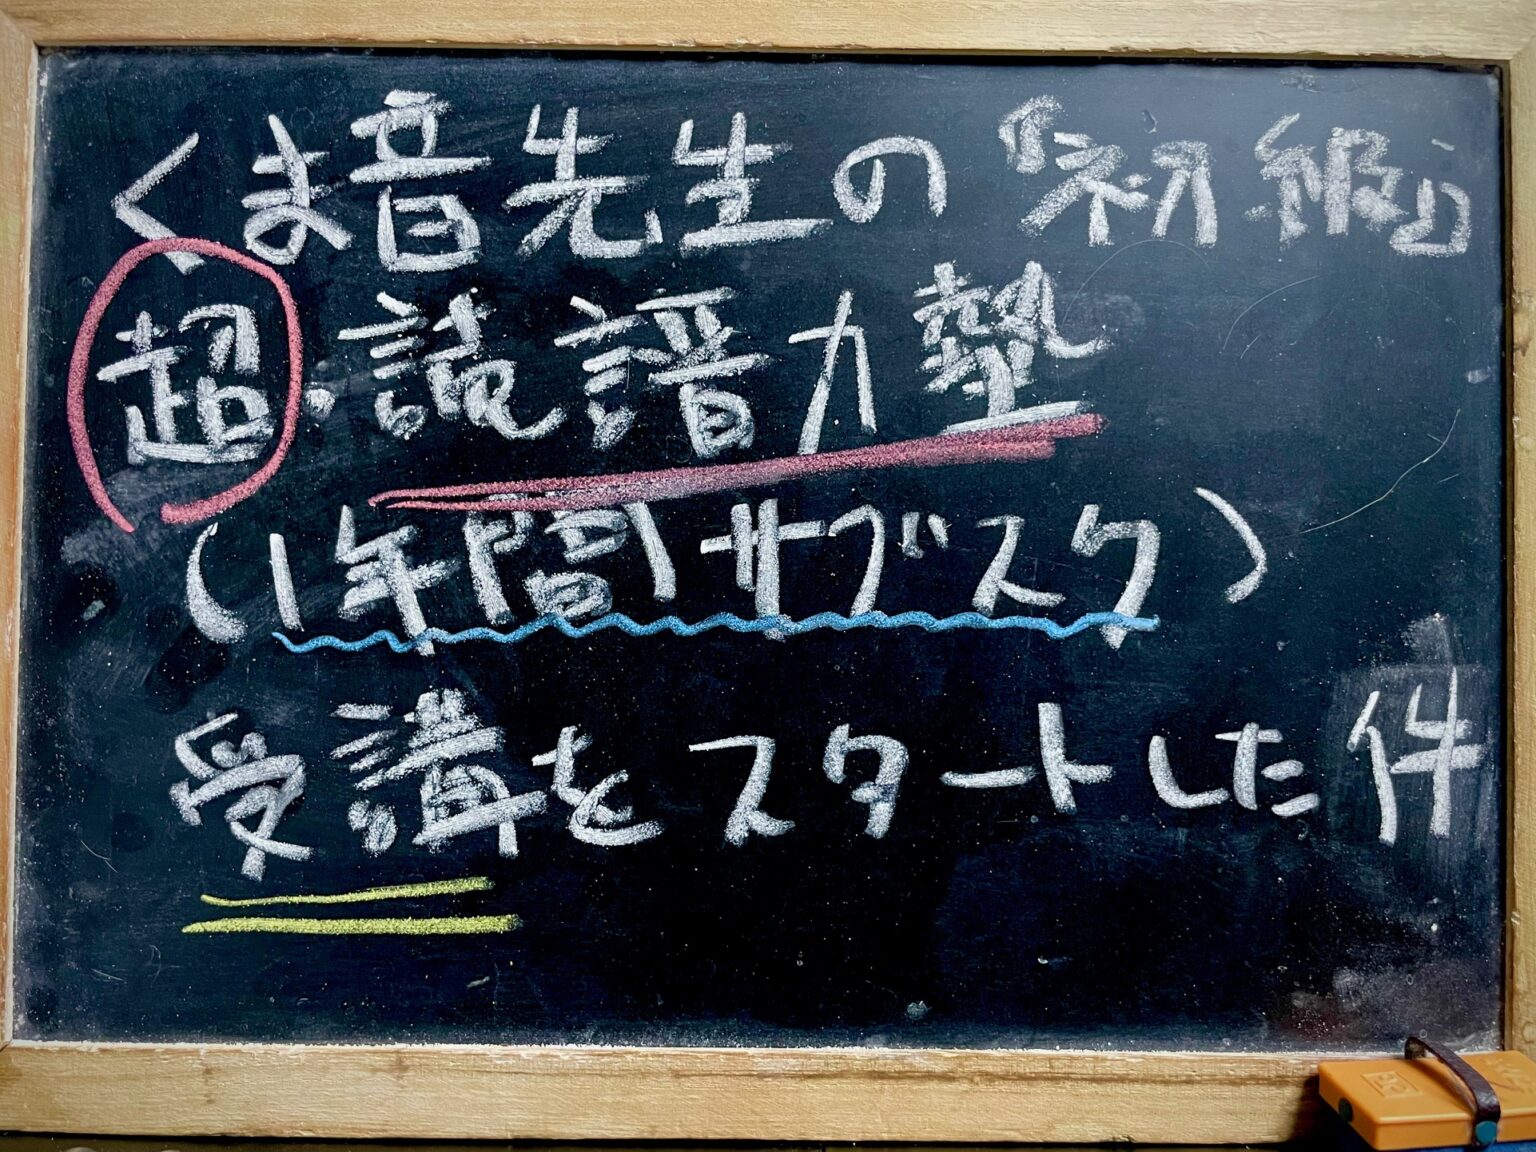 くま音先生の『初級』
超・読譜力塾
(1年間サブスク)
受講をスタートした件